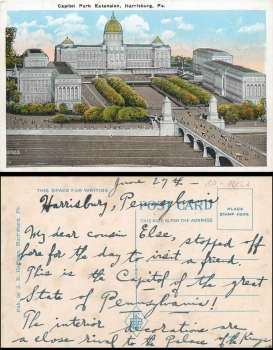 Capitol Park Extension, Harrisburg, Pa.
June 27th
10-1921
THIS SPACE FOR WRITING
POST CARD
THIS SIDE IS FOR THE ADDRESS
PLACE STAMP HERE
Harrisburg, Pennsylvania
My dear cousin Else, stopped off
here for the day to visit a friend.
This is the Capitol of the great
State of Pennsylvania!
The interior decorations are
a close rival to the Palace of the Kings